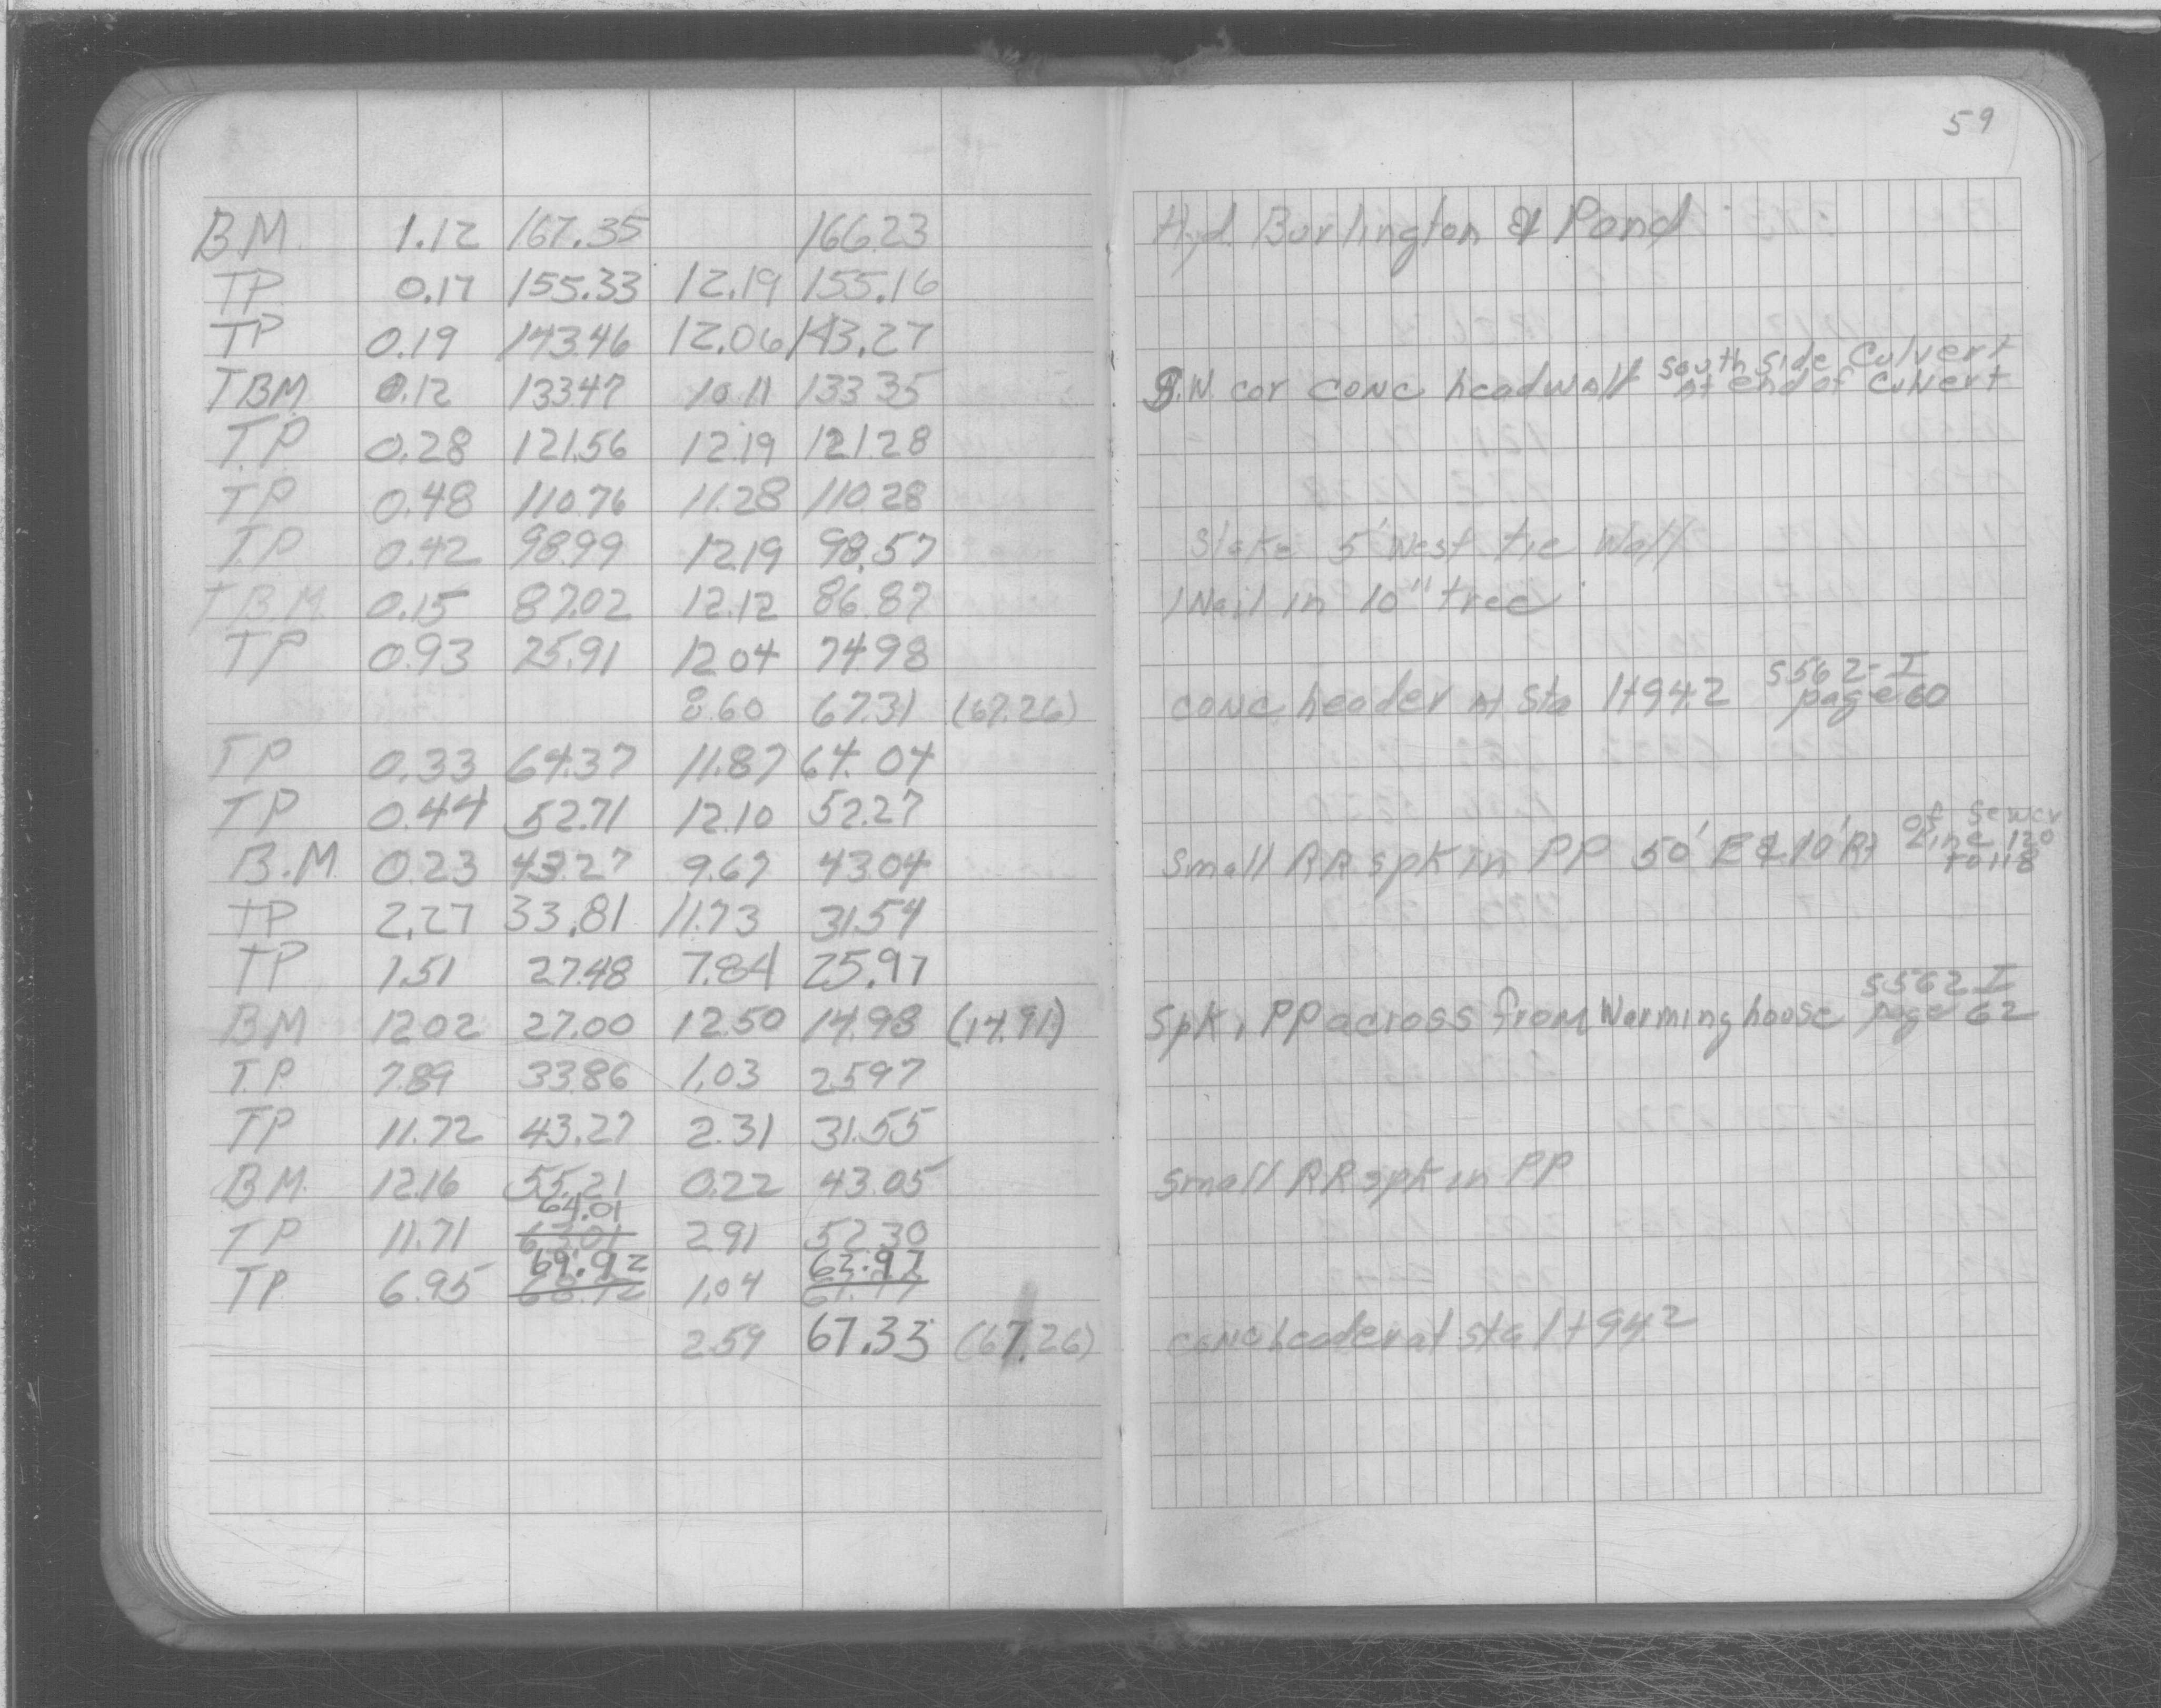 59
BM 1.12 167.35 166.23 Hyd. Burlington & Pond
TP 0.17 155.33 12.19 155.16
TP 0.19 143.46 12.06 143.27
TBM 0.12 133.47 10.11 133.35 S.W. cor conc headwall South side Culvert at end of culvert
T.P. 0.28 121.56 12.19 121.28
TP 0.48 110.76 11.28 110.28
TP 0.42 98.99 12.19 98.57 Stake 5' West tie Wall
TBM 0.15 87.02 12.12 86.87 1 Nail in 10" tree
TP 0.93 75.91 12.04 74.98
8.60 67.31 (67.26) conc header at Sta 1+94.2 S562-I page 60
TP 0.33 64.37 11.87 64.04
TP 0.44 52.71 12.10 52.27
B.M. 0.23 43.27 9.67 43.04 Small RR spk in PP 50' E & 10' Rt of Sewer Line 120 to 118
TP 2.27 33.81 11.73 31.54
TP 1.51 27.48 7.84 25.97
BM 12.02 27.00 12.50 14.98 (14.91) Spk, PP across from Warming house S562 I page 62
T.P. 7.89 33.86 1.03 25.97
TP 11.72 43.27 2.31 31.55
BM. 12.16 55.21 0.22 43.05 Small RR spk in PP
TP 11.71 64.01 63.01 2.91 52.30
TP. 6.95 69.92 68.92 1.04 62.97
2.59 67.33 (67.26) conc header at sta 1+94.2